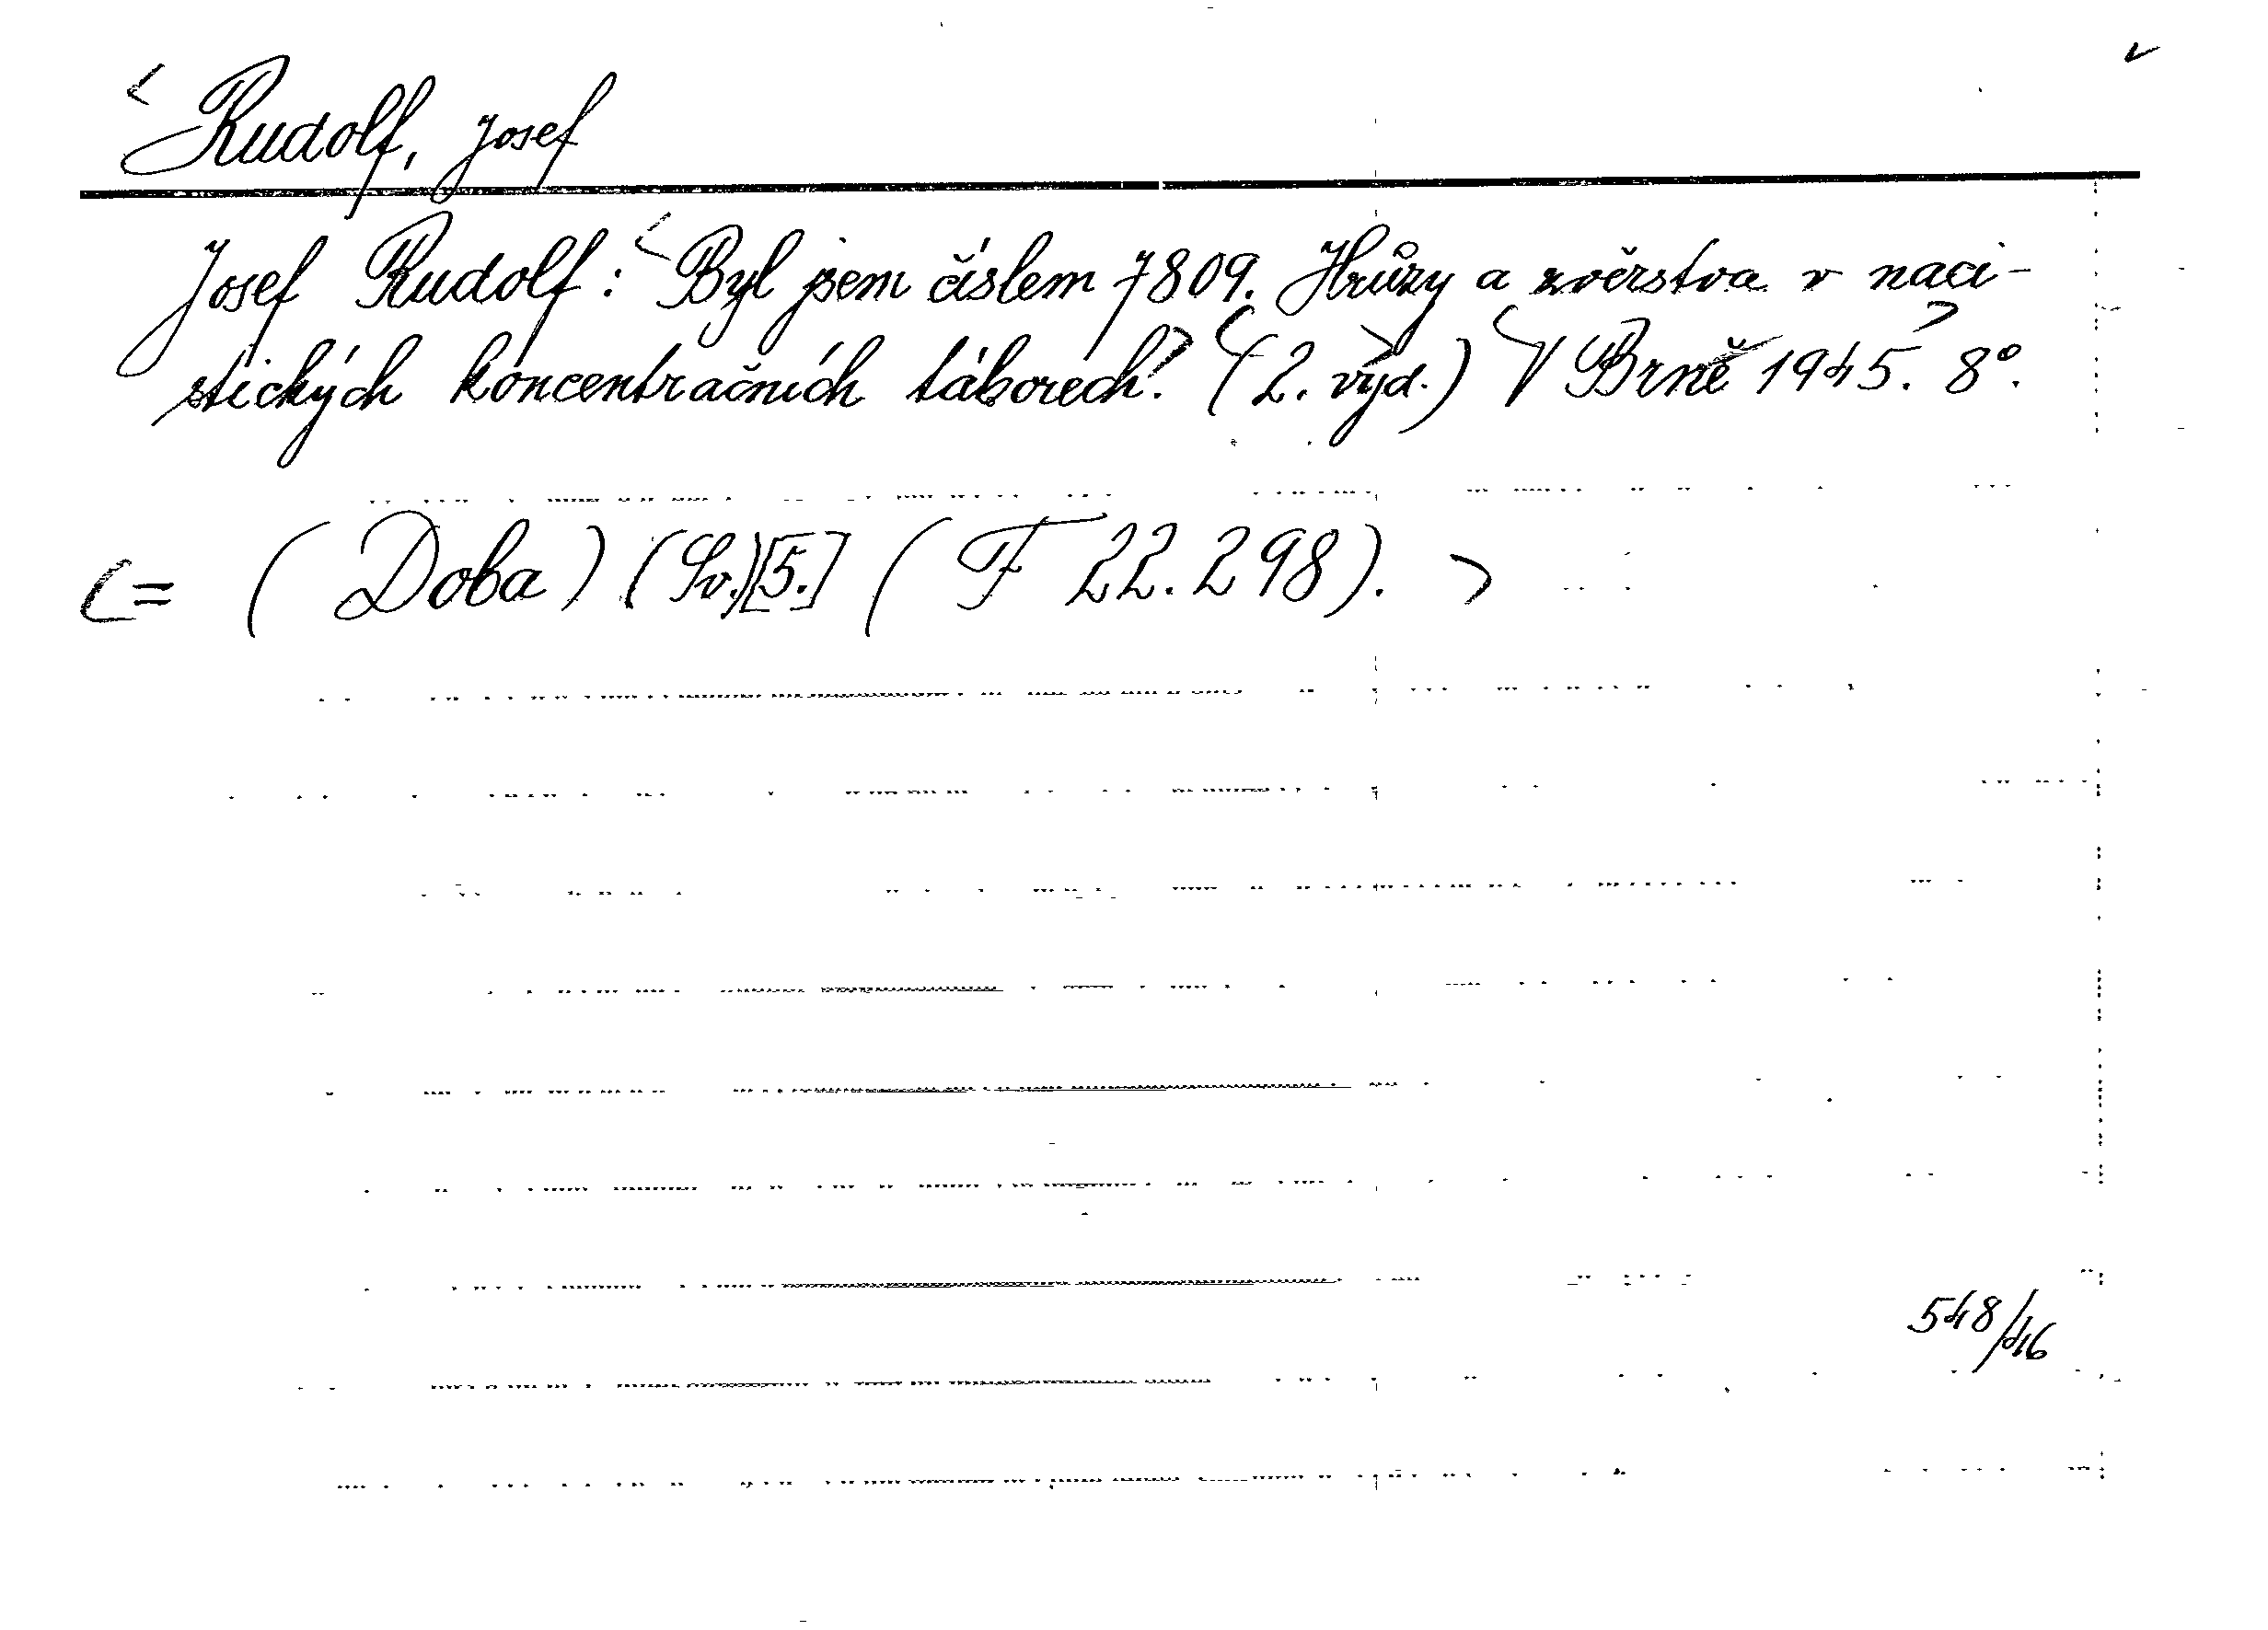 Rudolf, Josef
Josef Rudolf: Byl jsem číslem 7809. Hrůzy a zvěrstva v naci-
stických koncentračních táborech. (2. vyd.) V Brně 1945. 8°.
= (Doba) (Sv.)[5.] (F 22.298).
548/46